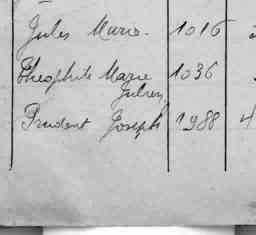 Jules Marie. 1016
Théophile Marie 1036
Julien
Prudent Joseph 1988 4